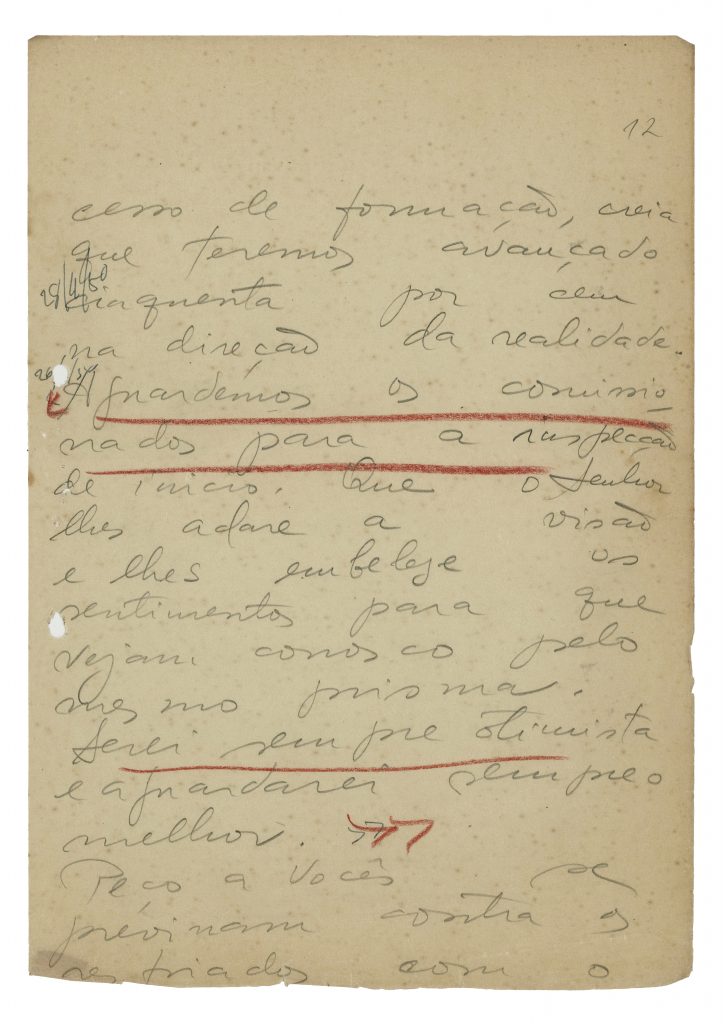 12
cesso de formação, creia
que teremos avançado
cinquenta por cem
na direção da realidade.
Aguardemos os comissio-
nados para a inspecção
de inicio. Que o Senhor
lhes aclare a visão
e lhes embeleze os
sentimentos para que
vejam conosco pelo
mesmo prisma.
Serei sempre otimista
e aguardarei sempre o
melhor.
Peço a Vocês se
previnam contra os
resfriados com o